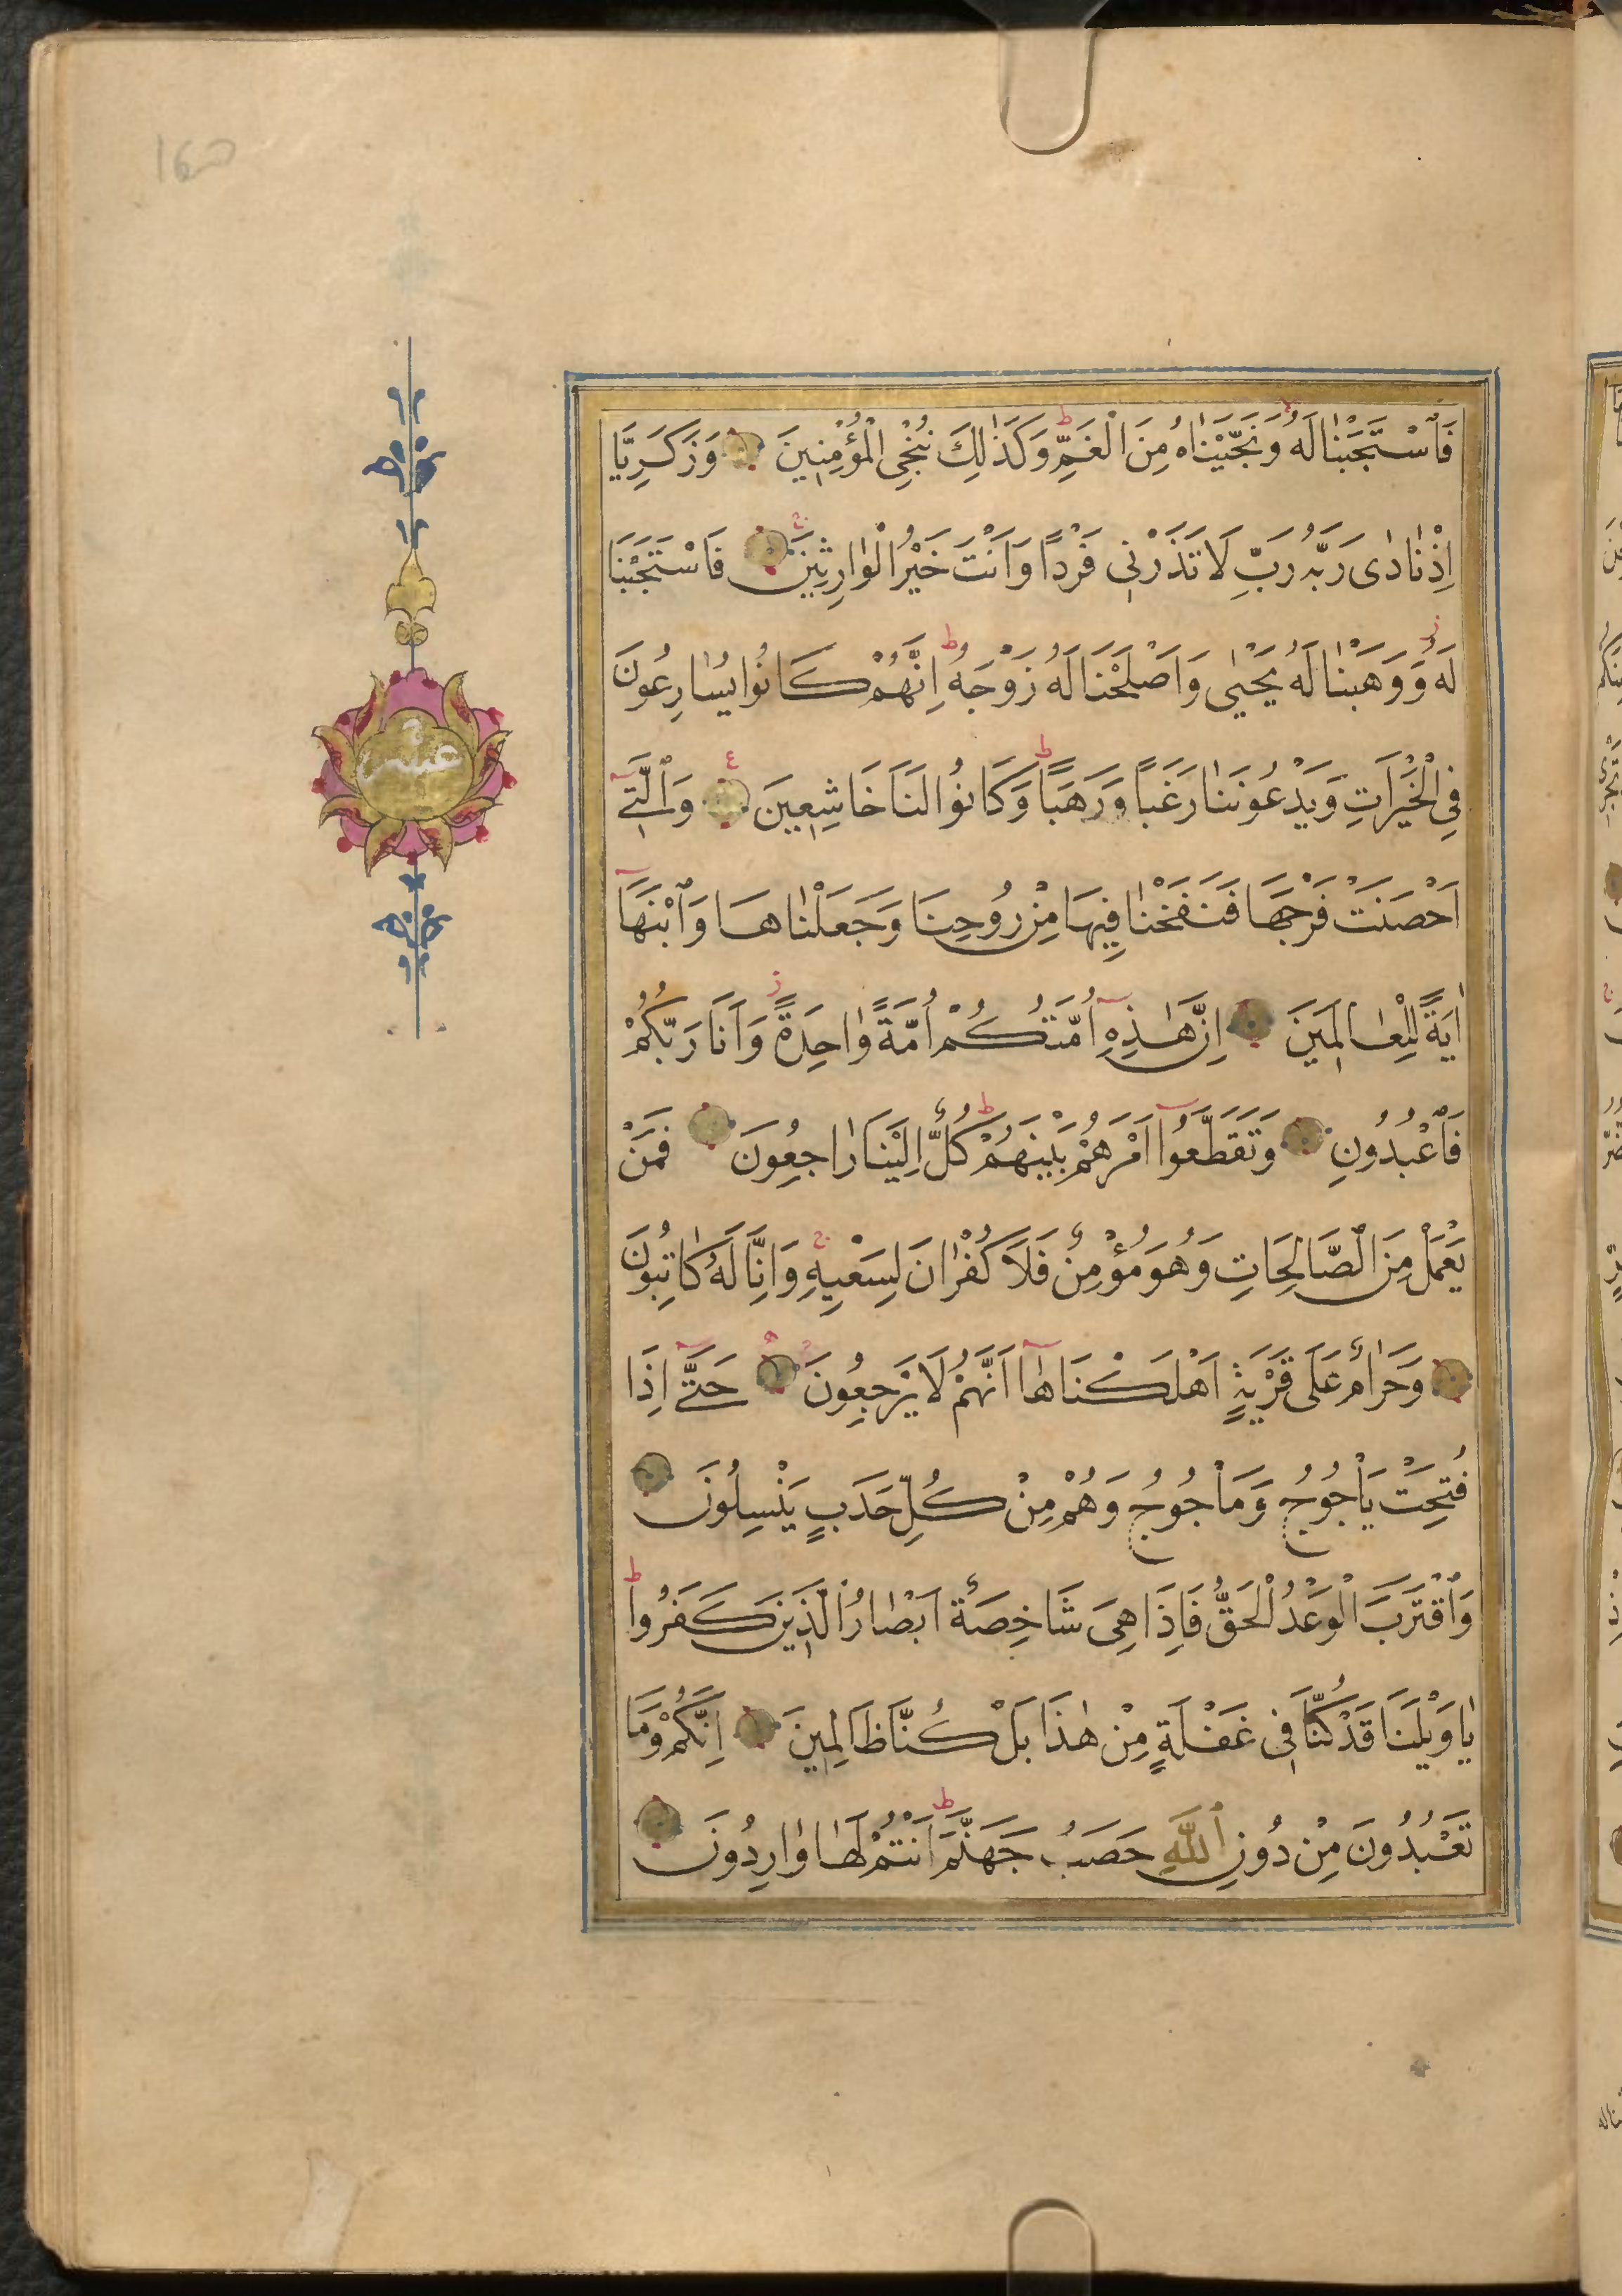 فَٱسْتَجَبْنَا لَهُ وَنَجَّيْنَاهُ مِنَ الْغَمِّ ط وَكَذٰلِكَ نُنْجِى الْمُؤْمِنِينَ وَزَكَرِيَّا
اِذْ نَادٰى رَبَّهُ رَبِّ لَا تَذَرْنِى فَرْدًا وَاَنْتَ خَيْرُ الْوَارِثِينَ ج فَاسْتَجَبْنَا
لَهُ ز وَوَهَبْنَا لَهُ يَحْيٰى وَاَصْلَحْنَا لَهُ زَوْجَهُ ط اِنَّهُمْ كَانُوا يُسَارِعُونَ
فِى الْخَيْرَاتِ وَيَدْعُونَنَا رَغَبًا وَرَهَبًا ط وَكَانُوا لَنَا خَاشِعِينَ ع وَالَّتِىٓ
اَحْصَنَتْ فَرْجَهَا فَنَفَخْنَا فِيهَا مِنْ رُوحِنَا وَجَعَلْنَاهَا وَٱبْنَهَآ
اٰيَةً لِلْعَالَمِينَ اِنَّ هٰذِهِٓ اُمَّتُكُمْ اُمَّةً وَاحِدَةً ز وَاَنَا رَبُّكُمْ
فَٱعْبُدُونِ وَتَقَطَّعُوٓا اَمْرَهُمْ بَيْنَهُمْ ط كُلٌّ اِلَيْنَا رَاجِعُونَ فَمَنْ
يَعْمَلْ مِنَ الصَّالِحَاتِ وَهُوَ مُؤْمِنٌ فَلَا كُفْرَانَ لِسَعْيِهِ ج وَاِنَّا لَهُ كَاتِبُونَ
وَحَرَامٌ عَلٰى قَرْيَةٍ اَهْلَكْنَاهَآ اَنَّهُمْ لَا يَرْجِعُونَ حَتّٰىٓ اِذَا
فُتِحَتْ يَاْجُوجُ وَمَاْجُوجُ وَهُمْ مِنْ كُلِّ حَدَبٍ يَنْسِلُونَ
وَٱقْتَرَبَ الْوَعْدُ الْحَقُّ فَاِذَا هِىَ شَاخِصَةٌ اَبْصَارُ الَّذِينَ كَفَرُوا ط
يَا وَيْلَنَا قَدْ كُنَّا فِى غَفْلَةٍ مِنْ هٰذَا بَلْ كُنَّا ظَالِمِينَ اِنَّكُمْ وَمَا
تَعْبُدُونَ مِنْ دُونِ ٱللّٰهِ حَصَبُ جَهَنَّمَ ط اَنْتُمْ لَهَا وَارِدُونَ
عشر